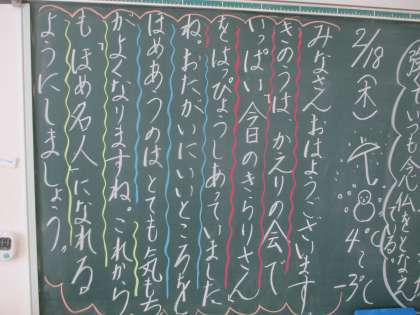 2/18(木) 4℃ -3℃
みなさんおはようございます。
きのうは、かえりの会で
いっぱい「今日のきらりさん」
をはっぴょうしあっていました
ね。おたがいにいいところを
ほめあうのはとても気もち
がよくなりますね。これから
も「ほめ名人」になれる
ようにしましょう。